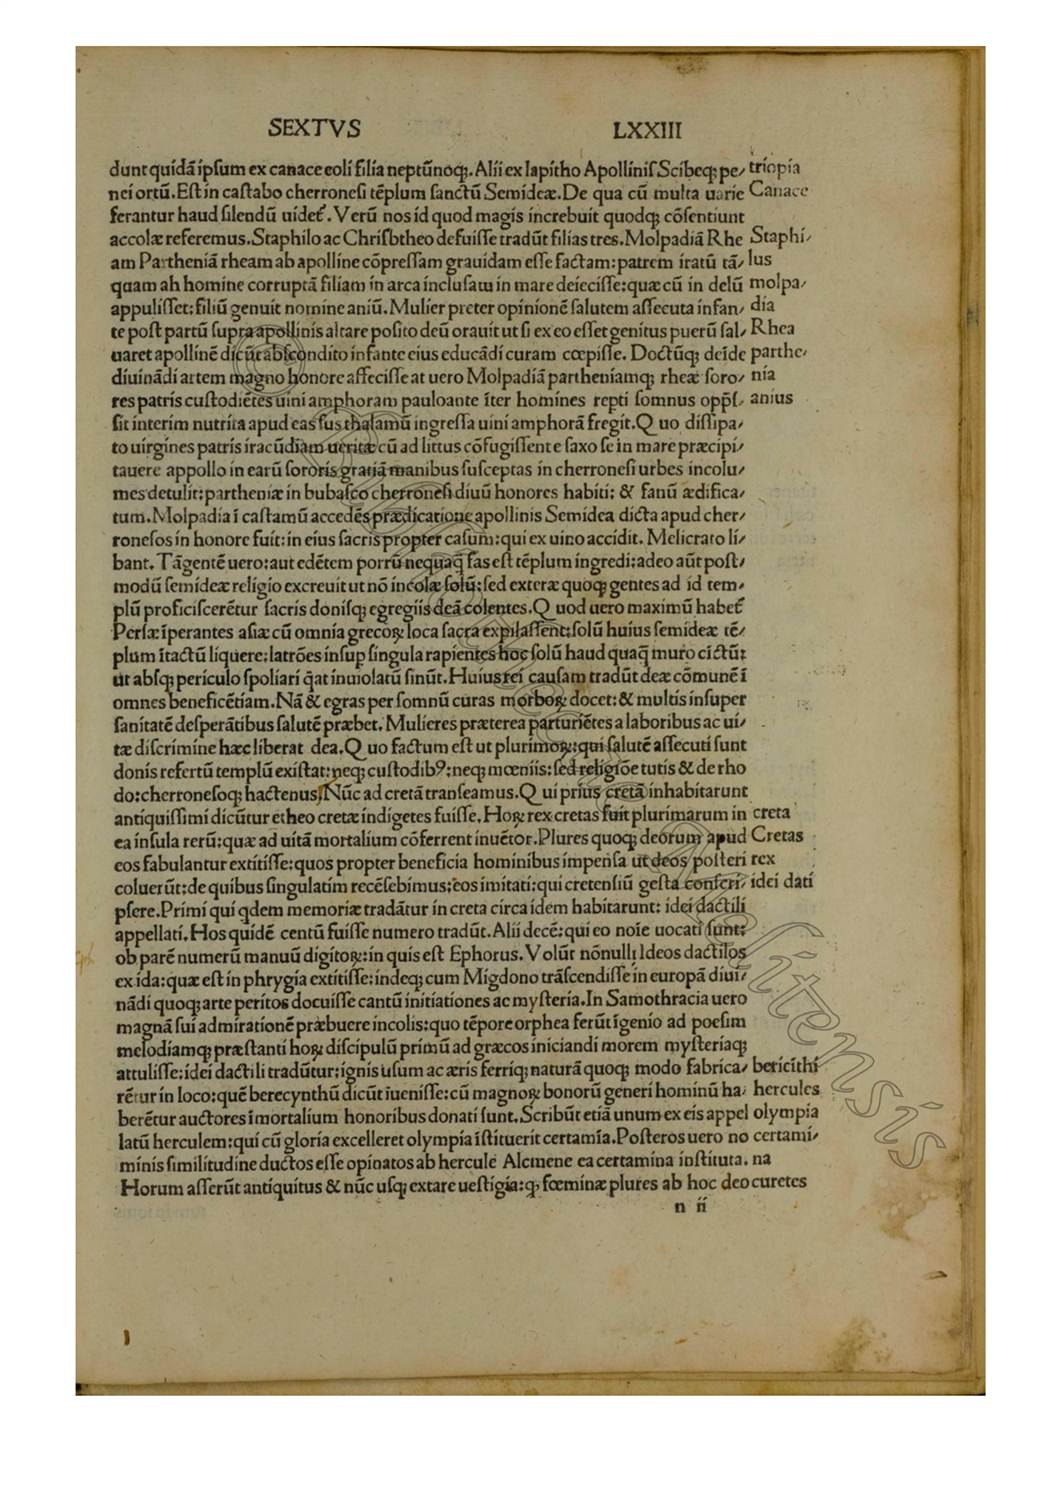 SEXTVS LXXIII
dunt quidã ipsum ex canace eoli filia neptũnoqꝫ. Alii ex lapitho Apolliniſ Scibeqꝫ pe/ triopia
nei ortũ. Eſt in caſtabo cherroneſi tẽplum ſanctũ Semideæ. De qua cũ multa uarie Canace
ferantur haud ſilendũ uidet᷑. Verũ nos id quod magis increbuit quodqꝫ cõſentiunt
accolæ referemus. Staphilo ac Chriſbtheo defuiſſe tradũt filias tres. Molpadiã Rhe Staphi/
am Partheniã rheam ab apolline cõpreſſam grauidam eſſe factam: patrem iratũ tã/ lus
quam ah homine corruptã filiam in arca incluſatu in mare deieciſſe: quæ cũ in delũ molpa/
appuliſſet: filiũ genuit nomine aniũ. Mulier preter opinionẽ ſalutem aſſecuta infan/ dia
te poſt partũ ſupra apollinis altare poſito deũ orauit ut ſi ex eo eſſet genitus puerũ ſal/ Rhea
uaret apollinẽ dicũt abſcondito infante eius educãdi curam cœpiſſe. Doctũqꝫ deĩde parthe/
diuinãdi artem magno honore affeciſſe at uero Molpadiã partheniamqꝫ rheæ ſoro/ nia
res patris cuſtodiẽtes uini amphoram pauloante ĩter homines repti ſomnus opp̃ſ/ anius
ſit interim nutrita apud eas ſus thalamũ ingreſſa uini amphorã fregit. Q uo diſſipa/
to uirgines patris iracũdiam ueritæ cũ ad littus cõfugiſſent e ſaxo ſe in mare præcipi/
tauere appollo in earũ ſororis gratiã manibus ſuſceptas in cherroneſi urbes incolu/
mes detulit: partheniæ in bubaſco cherroneſi diuũ honores habiti: & fanũ ædifica/
tum. Molpadia ĩ caſtamũ accedẽs prædicatione apollinis Semidea dicta apud cher/
roneſos in honore fuit: in eius ſacris propter caſum: qui ex uino accidit. Melicrato li/
bant. Tãgentẽ uero: aut edẽtem porrũ nequaq̃ fas eſt tẽplum ingredi: adeo aũt poſt/
modũ ſemideæ religio excreuit ut nõ incolæ ſolũ: ſed exteræ quoqꝫ gentes ad id tem/
plũ proficiſcerẽtur ſacris doniſqꝫ egregiis deã colentes. Q uod uero maximũ habet᷑
Perſæ ĩperantes aſiæ cũ omnia grecoꝝ loca ſacra expilaſſent: ſolũ huius ſemideæ tẽ/
plum ĩtactũ liquere: latrões inſup ſingula rapientes hoc ſolũ haud quaq̃ muro cictũ:
ut abſqꝫ periculo ſpoliari q̃at inuiolatũ ſinũt. Huius rei cauſam tradũt deæ cõmunẽ ĩ
omnes beneficẽtiam. Nã & egras per ſomnũ curas morboꝝ docet: & multis inſuper
ſanitatẽ deſperãtibus ſalutẽ præbet. Mulieres præterea parturiẽtes a laboribus ac ui/
tæ diſcrimine hæc liberat dea. Q uo factum eſt ut plurimoꝝ: qui ſalutẽ aſſecuti ſunt
donis refertũ templũ exiſtat: neqꝫ cuſtodibꝰ: neqꝫ mœniis: ſed religiõe tutis & de rho
do: cherroneſoqꝫ hactenus. Nũc ad cretã tranſeamus. Q ui prius cretã inhabitarunt
antiquiſſimi dicũtur etheo cretæ indigetes fuiſſe. Hoꝝ rex cretas fuit plurimarum in creta
ea inſula rerũ: quæ ad uitã mortalium cõferrent inuẽtor. Plures quoqꝫ deorum apud Cretas
eos fabulantur extitiſſe: quos propter beneficia hominibus impenſa ut deos poſteri rex
coluerũt: de quibus ſingulatim recẽſebimus: eos imitati: qui cretenſiũ geſta conſcri/ idei dati
pſere. Primi qui qdem memoriæ tradãtur in creta circa idem habitarunt: idei dactili
appellati. Hos quidẽ centũ fuiſſe numero tradũt. Alii decẽ: qui eo noĩe uocati ſunt:
ob parẽ numerũ manuũ digitoꝝ: in quis eſt Ephorus. Volũt nõnulli Ideos dactilos
ex ida: quæ eſt in phrygia extitiſſe: indeqꝫ cum Migdono trãſcendiſſe in europã diui/
nãdi quoqꝫ arte peritos docuiſſe cantũ initiationes ac myſteria. In Samothracia uero
magnã ſui admirationẽ præbuere incolis: quo tẽpore orphea ferũt ĩgenio ad poeſim
melodiamqꝫ præſtanti hoꝝ diſcipulũ primũ ad græcos iniciandi morem myſteriaqꝫ
attuliſſe: idei dactili tradũtur: ignis uſum ac æris ferriqꝫ naturã quoqꝫ modo fabrica/ bericithi
rẽtur in loco: quẽ berecynthũ dicũt ĩueniſſe: cũ magnoꝝ bonorũ generi hominũ ha/ hercules
berẽtur auctores ĩmortalium honoribus donati ſunt. Scribũt etiã unum ex eis appel olympia
latũ herculem: qui cũ gloria excelleret olympia ĩſtituerit certamĩa. Poſteros uero no certami/
minis ſimilitudine ductos eſſe opinatos ab hercule Alcmene ea certamina inſtituta. na
Horum aſſerũt antiquitus & nũc uſqꝫ extare ueſtigia: ꝙ fœminæ plures ab hoc deo curetes
n ii